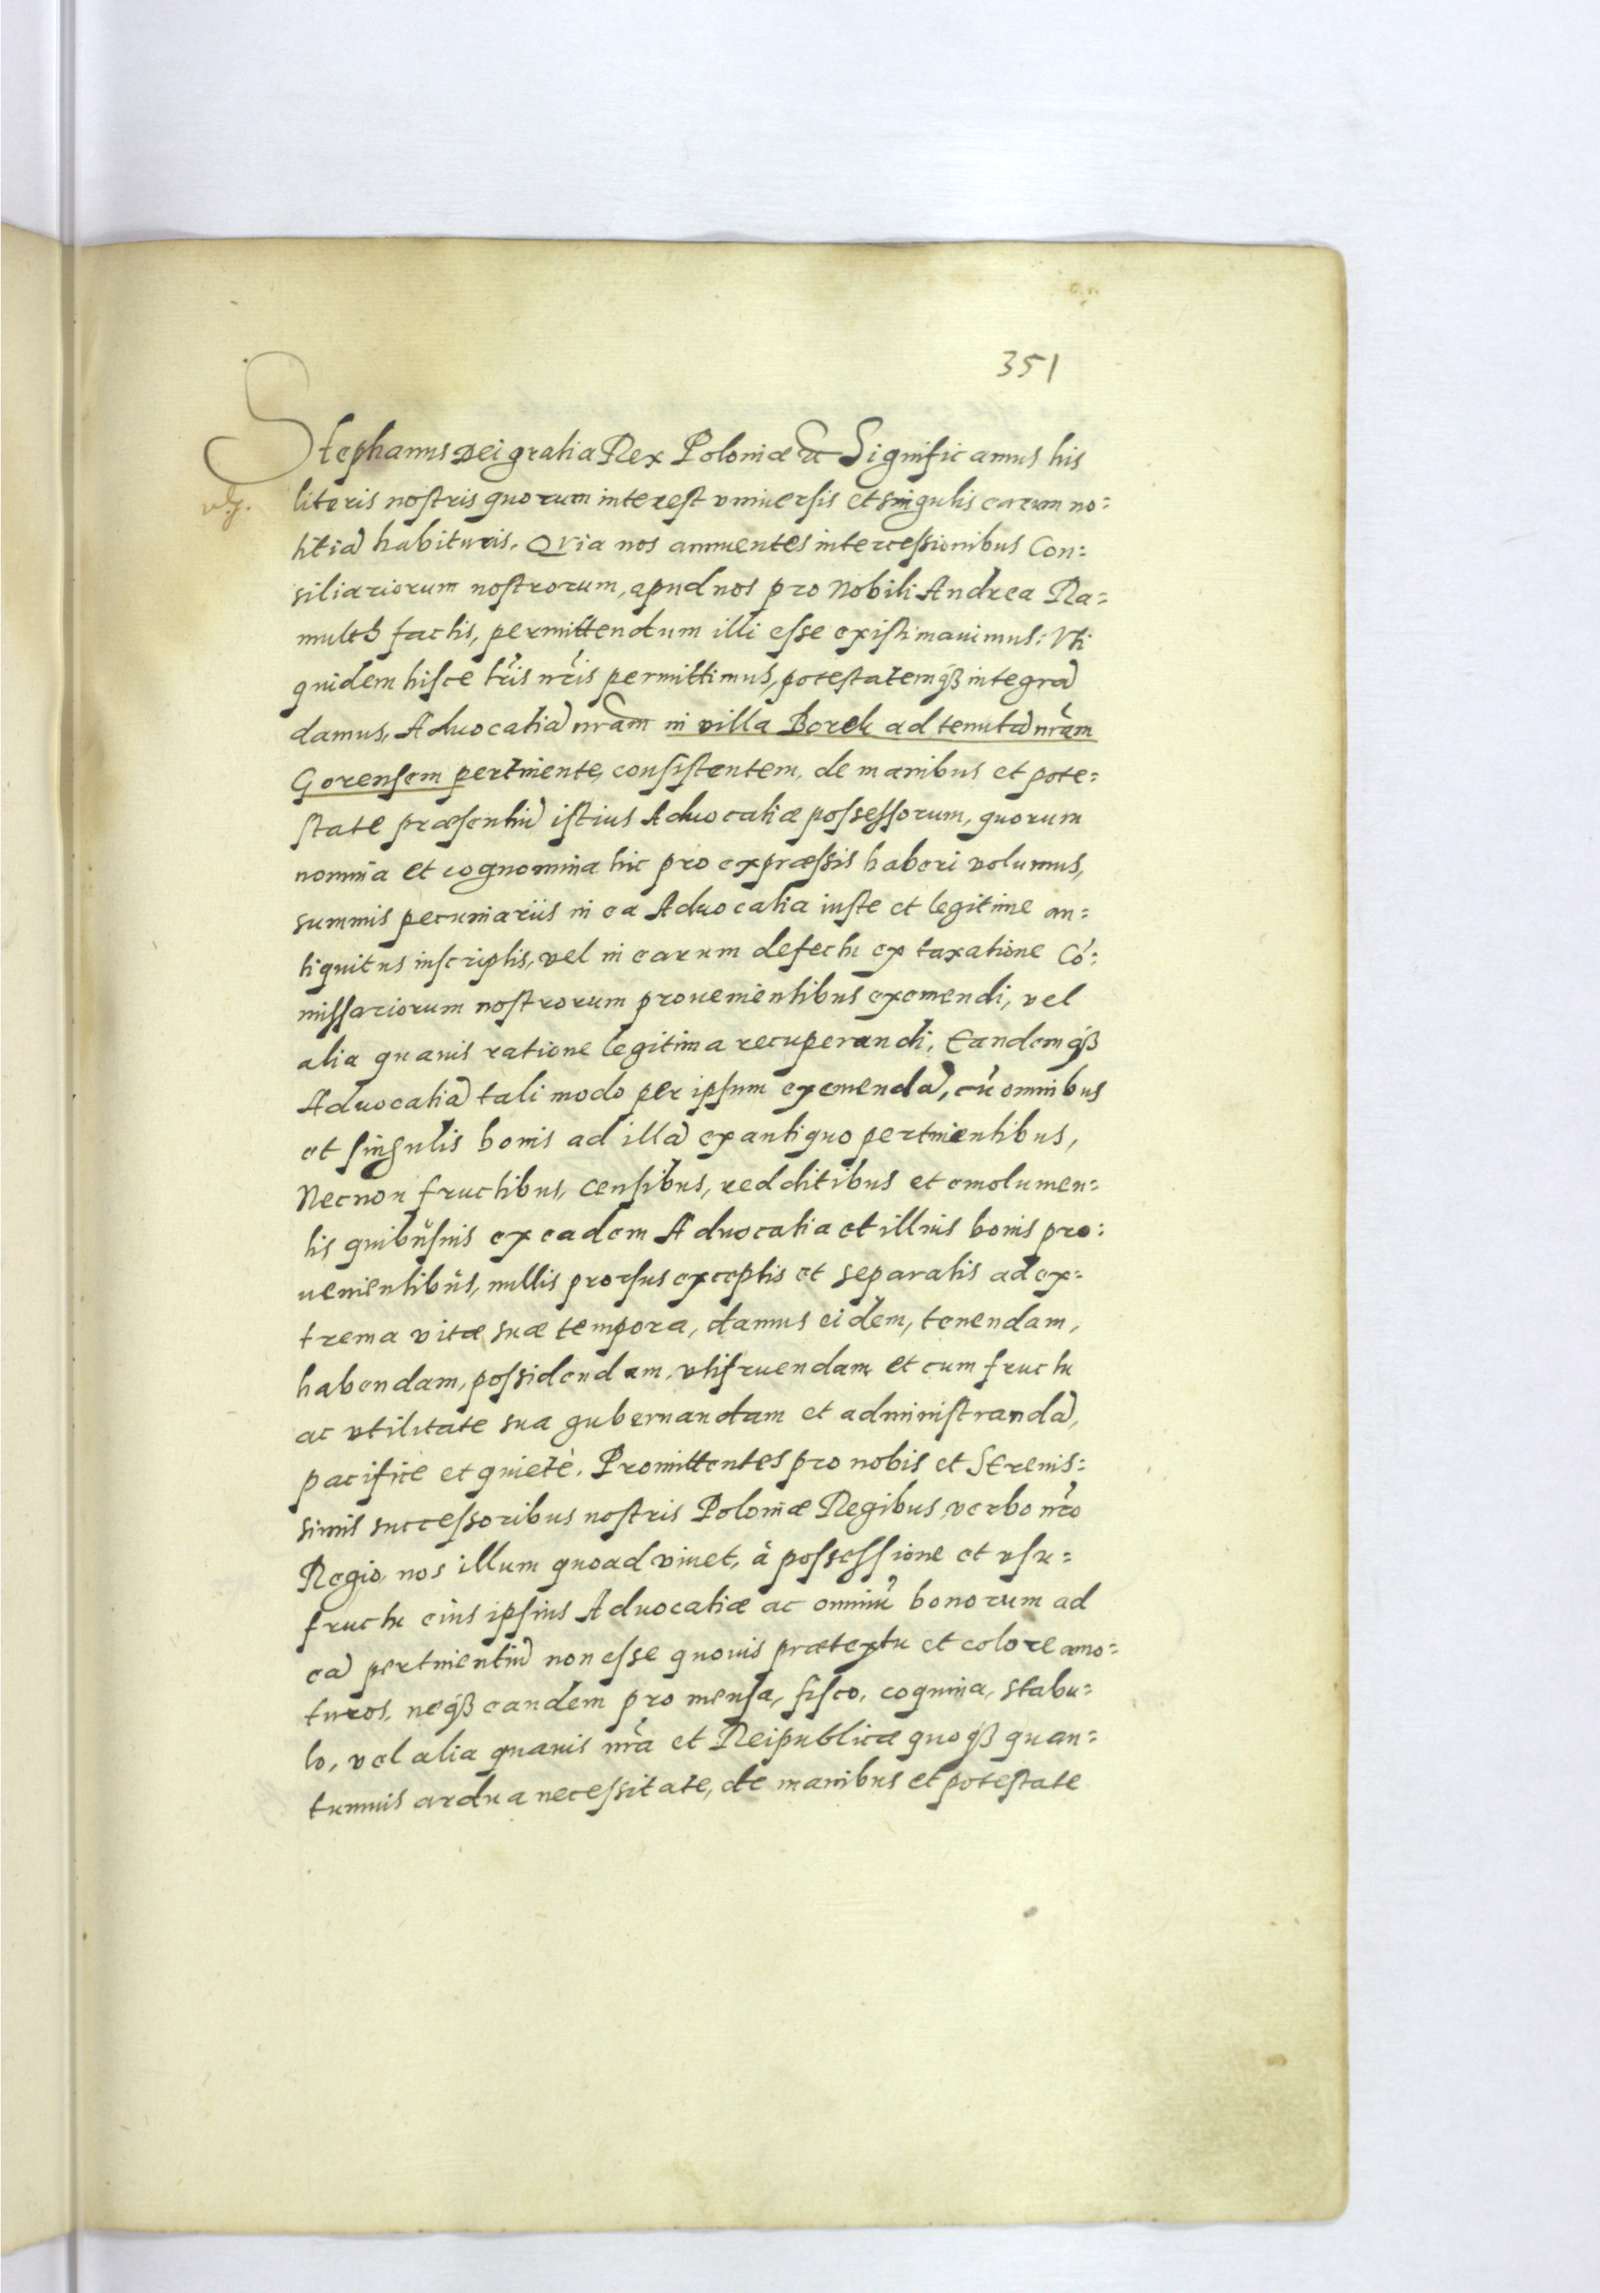 351
Stephanus Dei gratia Rex Poloniæ &c Significamus his
literis nostris quorum interest vniuersis et singulis earum no:
titiã habituris. Qvia nos annuentes intercessionibus Con:
siliariorum nostrorum, apud nos pro Nobili Andrea Ra:
mult factis, permittendum illi esse existimauimus: Vti
quidem hisce lr̃is nr̃is permittimus, potestatemqꝫ integrã
damus, Aduocatiã nrãm in villa Borek ad tenutã nrãm
Gorensem pertinente, consistentem, de manibus et pote:
state præsentiũ istius Aduocatiæ possessorum, quorum
nomina et cognomina hic pro expræssis haberi volumus,
summis pecuniariis in ea Aduocatia iuste et legitime an:
tiquitus inscriptis, vel in earum defectu ex taxatione Cõ:
missariorum nostrorum prouenientibus exemendi, vel
alia quauis ratione legitima recuperandi. Eandemqꝫ
Aduocatiã tali modo per ipsum exemendã, cũ omnibus
et singulis bonis ad illã ex antiquo pertinentibus,
Necnon fructibus, censibus, redditibus et emolumen:
tis quibusuis ex eadem Aduocatia et illius bonis pro:
uenientibus, nullis prorsus exceptis et separatis ad ex:
trema vitæ suæ tempora, damus eidem, tenendam,
habendam, possidendam, vtifruendam et cum fructu
ac vtilitate sua gubernandam et administrandã,
pacifice et quietè. Promittentes pro nobis et Serenis:
simis successoribus nostris Poloniæ Regibus, verbo nr̃o
Regio, nos illum quoad viuet, à possessione et vsu:
fructu eius ipsius Aduocatiæ ac omniũ bonorum ad
eã pertinentiũ non esse quouis prætextu et colore amo:
turos, neqꝫ eandem pro mensa, fisco, coquina, stabu:
lo, vel alia quauis nrã et Reipublicæ quoqꝫ quan:
tumuis ardua necessitate, de manibus et potestate